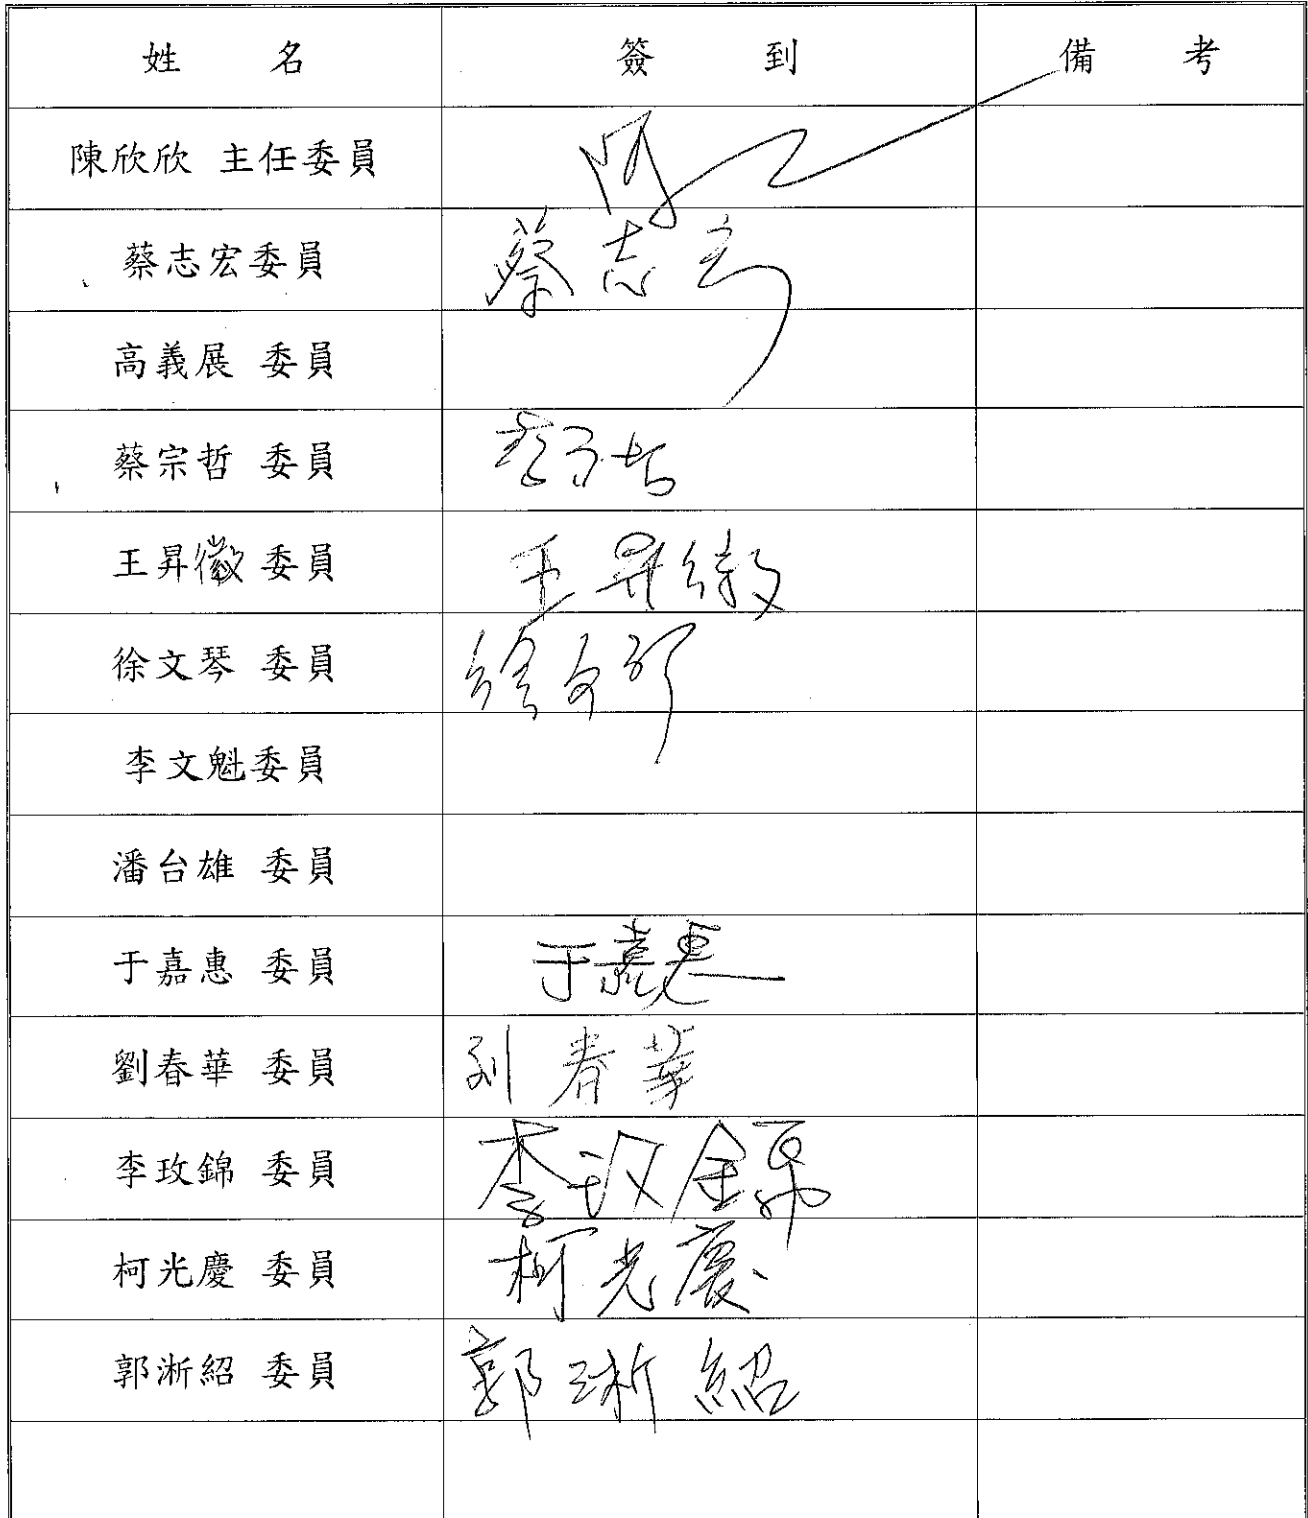 姓 名 簽 到 備 考
陳欣欣 主任委員
蔡志宏委員 蔡志宏
高義展 委員
蔡宗哲 委員 蔡宗哲
王昇徽 委員 王昇徽
徐文琴 委員 徐文琴
李文魁委員
潘台雄 委員
于嘉惠 委員 于嘉惠
劉春華 委員 刘春華
李玫錦 委員 李玫錦
柯光慶 委員 柯光慶
郭淅紹 委員 郭淅紹